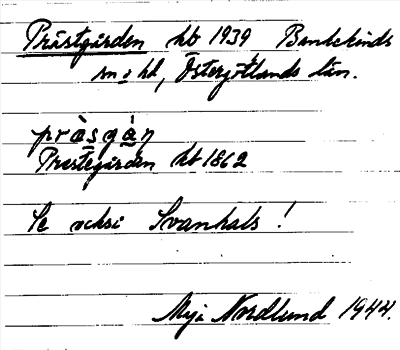 Prästgården kb 1939 Bankekinds
sn o hd, Östergötlands län.
pràsgàṇ
Prestegården kb 1862
Se också Svanhals!
Nordlund 1944.